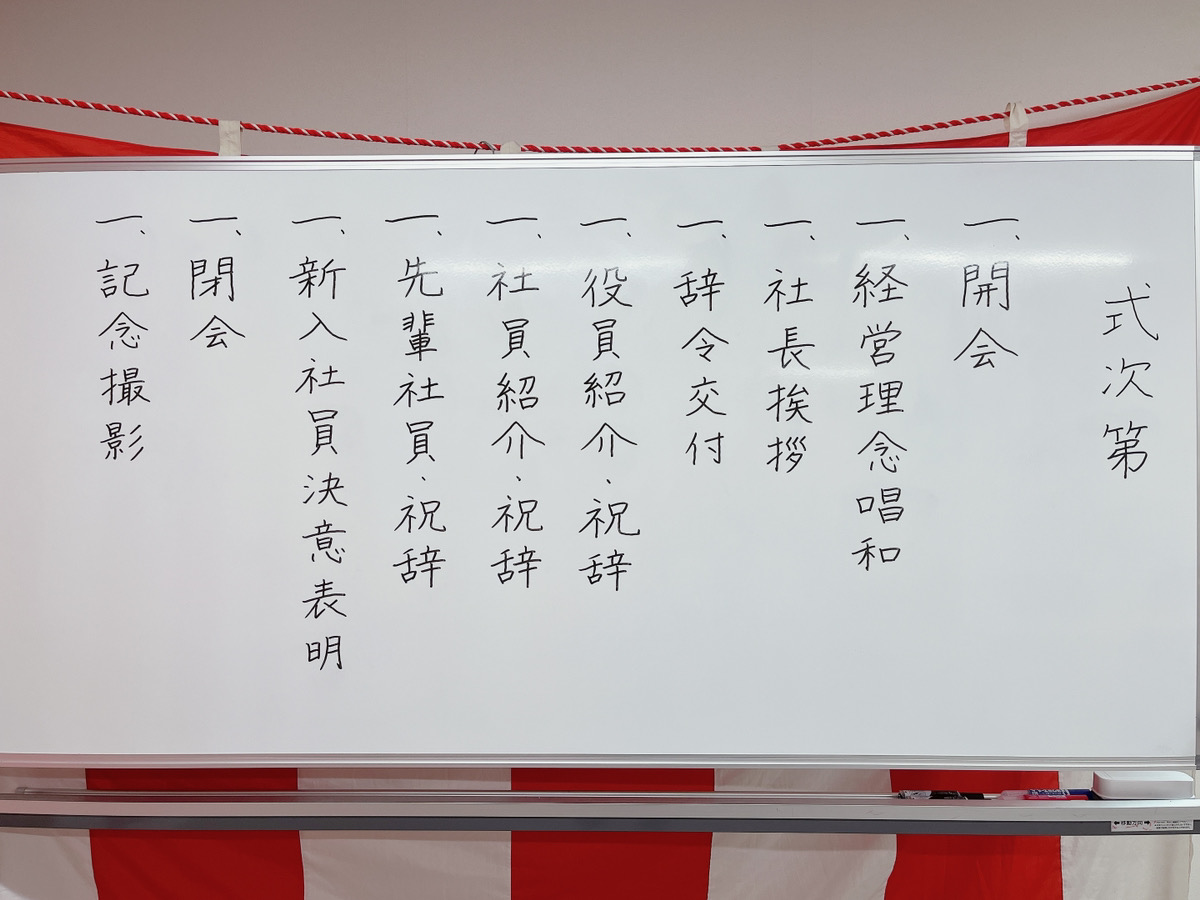 式次第
一、開会
一、経営理念唱和
一、社長挨拶
一、辞令交付
一、役員紹介、祝辞
一、社員紹介、祝辞
一、先輩社員、祝辞
一、新入社員決意表明
一、閉会
一、記念撮影